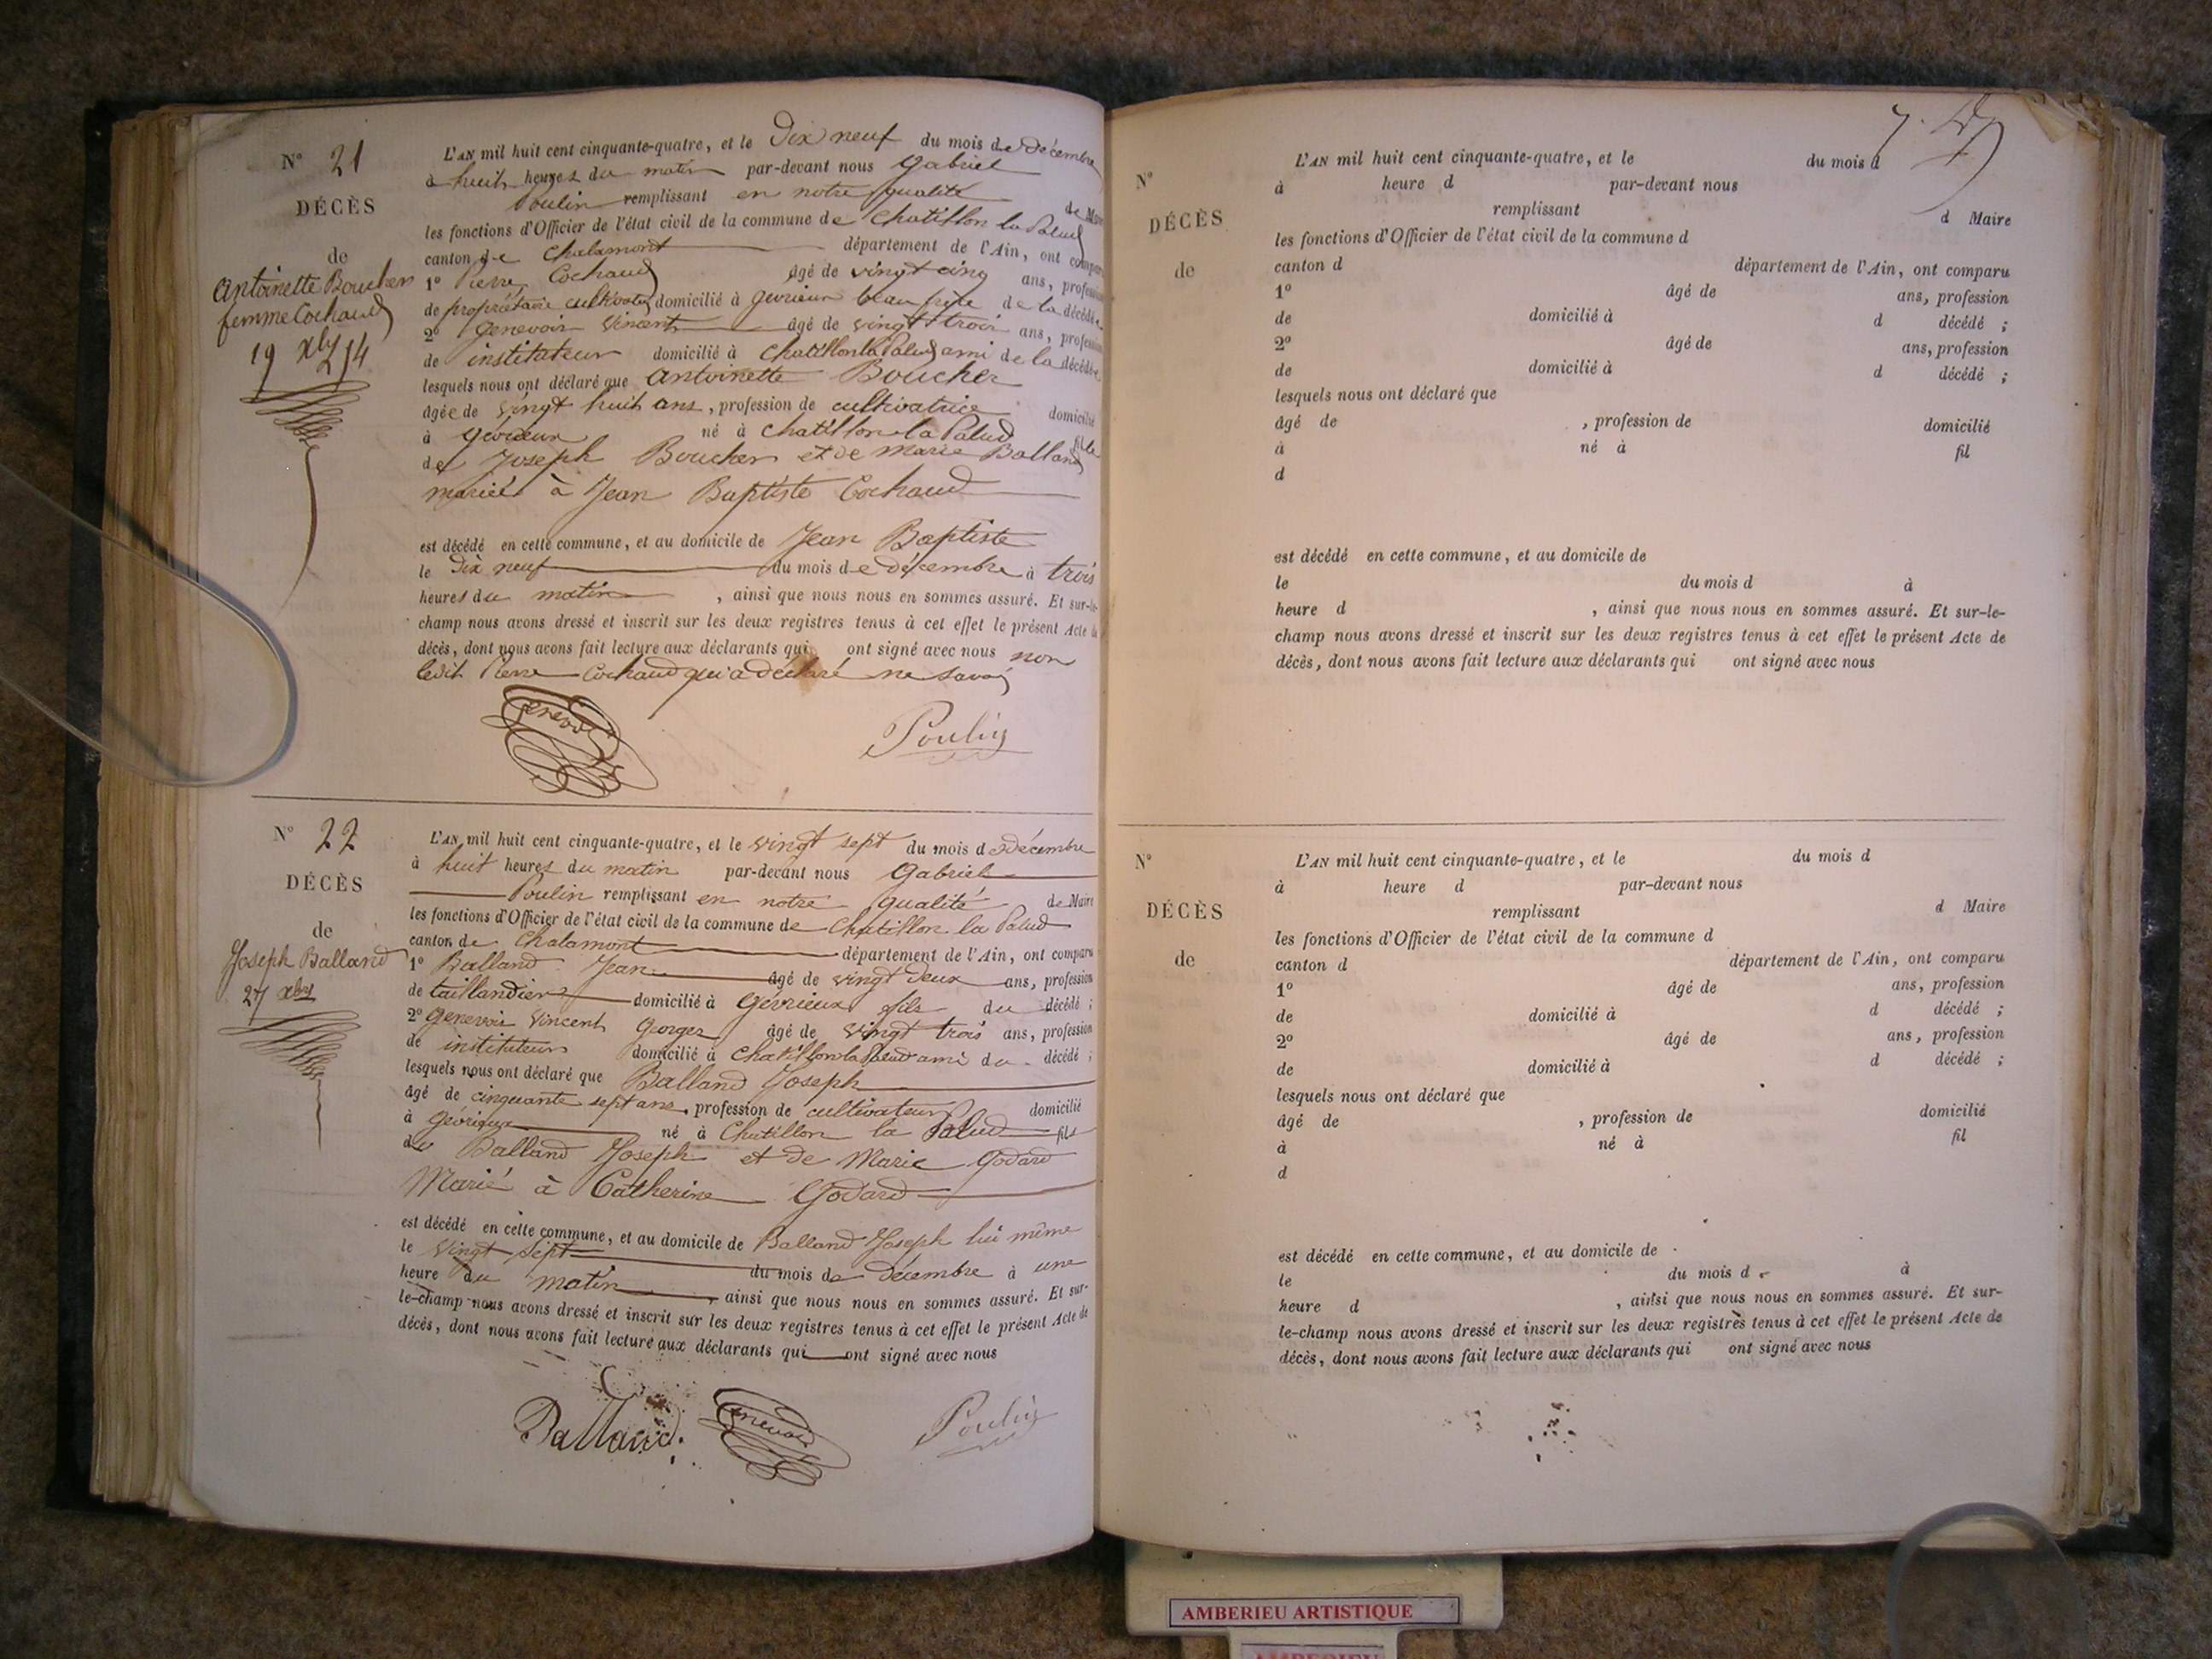 N° 21
DÉCÈS
de
Antoinette Boucher
femme Cochaud
19 xbre 54
L'AN mil huit cent cinquante-quatre, et le Dix neuf du mois de Décembre
à huit heures du matin par-devant nous Gabriel
Poulin remplissant en notre qualité de Maire
les fonctions d'Officier de l'état civil de la commune de Chatillon la Palud
canton de Chalamont département de l'Ain, ont comparu
1° Pierre Cochaud âgé de vingt cinq ans, profession
de propriétaire cultivateur domicilié à Gevrieux beau frère de la décédée
2° Genevois Vincent âgé de vingt trois ans, profession
de instituteur domicilié à Chatillon la Palud ami de la décédée
lesquels nous ont déclaré que Antoinette Boucher
âgée de vingt huit ans, profession de cultivatrice domicilié
à Gévrieux né à Chatillon la Palud fille
de Joseph Boucher et de Marie Balland
mariée à Jean Baptiste Cochaud
est décédé en cette commune, et au domicile de Jean Baptiste
le Dix neuf du mois de décembre à trois
heures du matin, ainsi que nous nous en sommes assuré. Et sur-le-
champ nous avons dressé et inscrit sur les deux registres tenus à cet effet le présent Acte de
décès, dont nous avons fait lecture aux déclarants qui ont signé avec nous non
ledit Pierre Cochaud qui a déclaré ne savoir
Genevois Poulin
N° 22
DÉCÈS
de
Joseph Balland
27 xbre
L'AN mil huit cent cinquante-quatre, et le vingt sept du mois de décembre
à huit heures du matin par-devant nous Gabriel
Poulin remplissant en notre qualité de Maire
les fonctions d'Officier de l'état civil de la commune de Chatillon la Palud
canton de Chalamont département de l'Ain, ont comparu
1° Balland Jean âgé de vingt deux ans, profession
de taillandier domicilié à Gévrieux fils du décédé ;
2° Genevois Vincent Georges âgé de vingt trois ans, profession
de instituteur domicilié à Chatillon la Palud ami du décédé ;
lesquels nous ont déclaré que Balland Joseph
âgé de cinquante sept ans, profession de cultivateur domicilié
à Gévrieux né à Chatillon la Palud fils
de Balland Joseph et de Marie Godard
Marié à Catherine Godard
est décédé en cette commune, et au domicile de Balland Joseph lui même
le vingt sept du mois de décembre à une
heure du matin, ainsi que nous nous en sommes assuré. Et sur-
le-champ nous avons dressé et inscrit sur les deux registres tenus à cet effet le présent Acte de
décès, dont nous avons fait lecture aux déclarants qui ont signé avec nous
Balland Genevois Poulin
N°
DÉCÈS
de
L'AN mil huit cent cinquante-quatre, et le du mois d
à heure d par-devant nous
remplissant d Maire
les fonctions d'Officier de l'état civil de la commune d
canton d département de l'Ain, ont comparu
1° âgé de ans, profession
de domicilié à d décédé ;
2° âgé de ans, profession
de domicilié à d décédé ;
lesquels nous ont déclaré que
âgé de , profession de domicilié
à né à fil
d
est décédé en cette commune, et au domicile de
le du mois d à
heure d , ainsi que nous nous en sommes assuré. Et sur-le-
champ nous avons dressé et inscrit sur les deux registres tenus à cet effet le présent Acte de
décès, dont nous avons fait lecture aux déclarants qui ont signé avec nous
N°
DÉCÈS
de
L'AN mil huit cent cinquante-quatre, et le du mois d
à heure d par-devant nous
remplissant d Maire
les fonctions d'Officier de l'état civil de la commune d
canton d département de l'Ain, ont comparu
1° âgé de ans, profession
de domicilié à d décédé ;
2° âgé de ans, profession
de domicilié à d décédé ;
lesquels nous ont déclaré que
âgé de , profession de domicilié
à né à fil
d
est décédé en cette commune, et au domicile de
le du mois d à
heure d , ainsi que nous nous en sommes assuré. Et sur-
le-champ nous avons dressé et inscrit sur les deux registres tenus à cet effet le présent Acte de
décès, dont nous avons fait lecture aux déclarants qui ont signé avec nous
AMBERIEU ARTISTIQUE
AMBERIEU